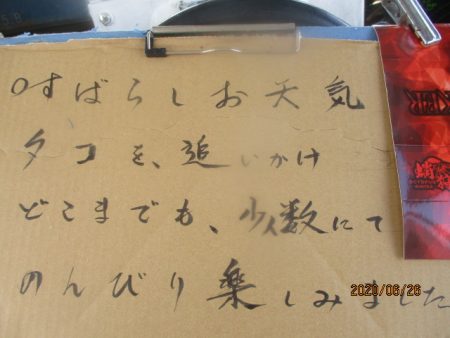 ○すばらしお天気
タコを、追いかけ
どこまでも、少人数にて
のんびり楽しみました
2020/06/26